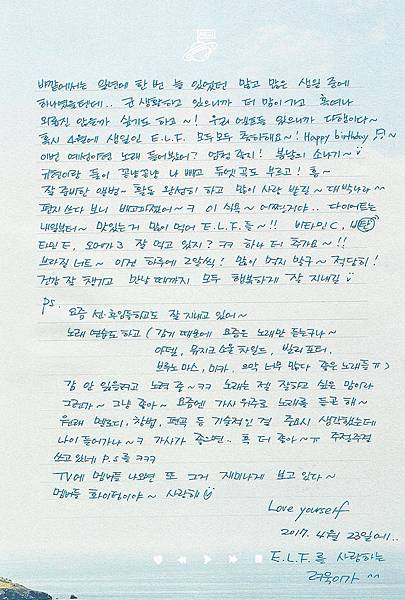 바깥에서는 일년에 한 번 늘 있었던 많고 많은 생일 중에
하나였을텐데.. 군 생활하고 있으니까 더 많이 가고 혹여나
외롭진 않을까 싶기도 하고~! 우리 엘프들 있으니까 다행이다~
혹시 4월에 생일인 E.L.F. 모두모두 축하해요~! Happy birthday
이번 예성이형 노래 들어봤어? 엄청 좋지! 봄날의 소나기~
규현이랑 둘이 꽁냥꽁냥 나 빼고 듀엣곡도 부르고! 흥~
잘 준비한 앨범~ 활동 왕성히 하고 많이 사랑 받길~ 대박나라~
편지쓰다 보니 배고파졌어~ㅋ 이 식욕~ 어쩔거야.. 다이어트는
내일부터~ 맛있는거 많이 먹어 E.L.F.들~!! 비타민C, 비
타민E, 오메가3 잘 먹고 있지? ㅋㅋ 하나 더 추가요~!!
브라질너트~ 이건 하루에 2알씩! 많이 먹지 말구~ 적당히!
건강 잘 챙기고 만날 때까지 모두 행복하게 잘 지내길
P.S.
요즘 선·후임들하고도 잘 지내고 있어~
노래 연습도 하고 (감기 때문에 요즘은 노래만 듣는구나~
아델, 뮤지크 소울 차일드, 빌리 포터,
브루노 마스, 미카.. 으악 너무 많다 좋은 노래들 ㅠ)
감 안 잃을려고 노력 중~ㅋㅋ 노래는 젤 잘하고 싶은 맘이라
그런가~ 그냥 좋아~ 요즘엔 가사 위주로 노래를 듣곤 해~
원래 멜로디, 창법, 편곡 등 기술적인 걸 중요시 생각했는데
나이 들어가나~ㅋ 가사가 좋으면.. 푹 더 좋아~ㅠ 주절주절
쓰고 있네 P.S를 ㅋㅋㅋ
TV에 멤버들 나오면 또 그거 재미나게 보고 있다~
멤버들 화이팅이야~ 사랑해
Love yourself
2017. 4월 23일에..
E.L.F.를 사랑하는
려욱이가 ^^